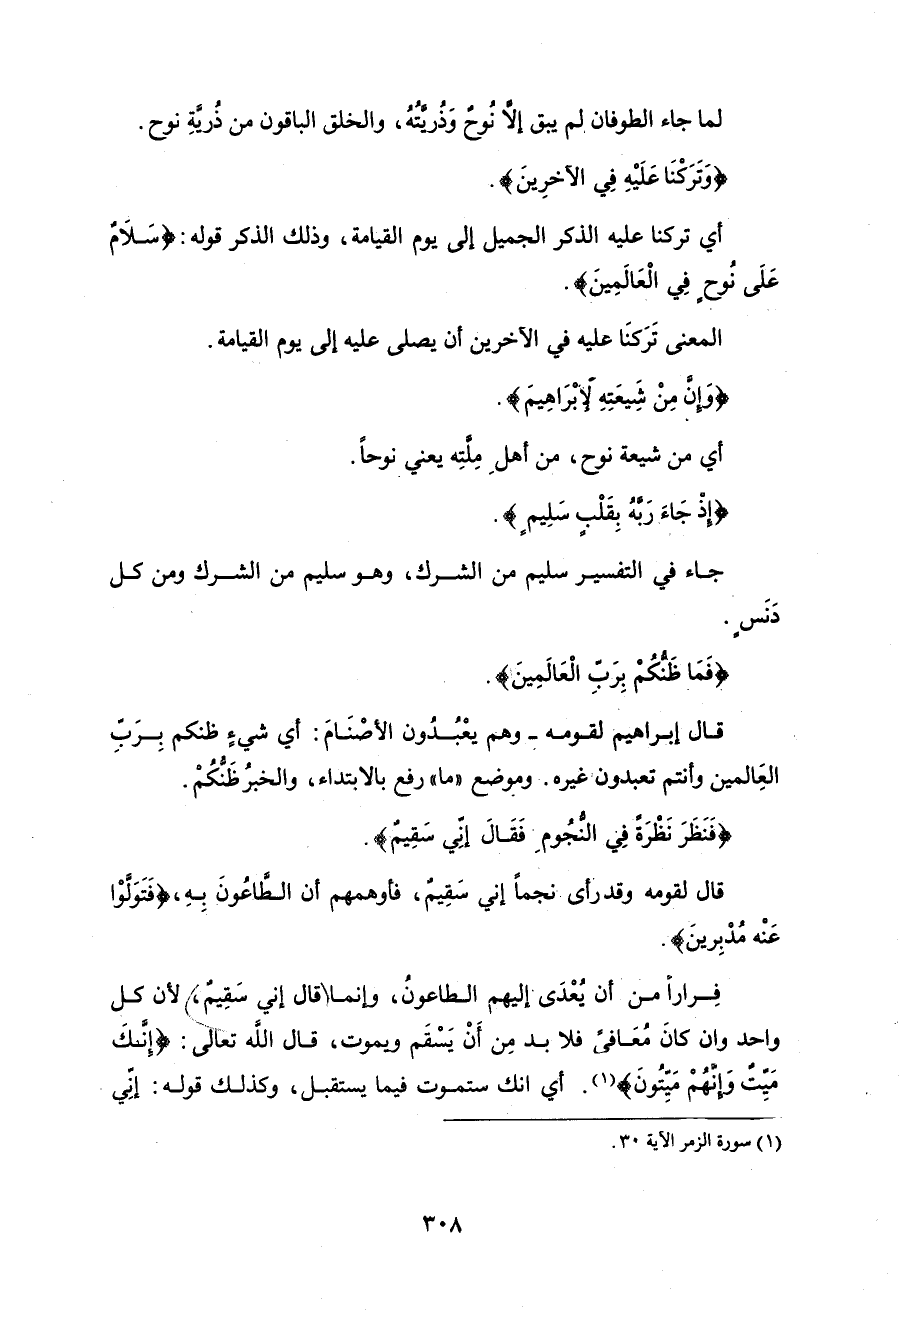 لما جاء الطوفان لم يبق إلَّا نُوحٌ وَذُريَّتُهُ، والخلق الباقون من ذُريَّةِ نوح.
﴿وَتَرَكْنَا عَلَيْهِ فِي الآخرِينَ﴾.
أي تركنا عليه الذكر الجميل إلى يوم القيامة، وذلك الذكر قوله: ﴿سَلَامٌ
عَلَى نُوحٍ فِي الْعَالَمِينَ﴾.
المعنى تَرَكنَا عليه في الآخرين أن يصلى عليه إلى يوم القيامة.
﴿وَإِنَّ مِنْ شِيعَتِهِ لَإِبْرَاهِيمَ﴾.
أي من شيعة نوح، من أهلِ مِلَّتِه يعني نوحاً.
﴿إِذْ جَاءَ رَبَّهُ بِقَلْبٍ سَلِيمٍ﴾.
جاء في التفسير سليم من الشرك، وهو سليم من الشرك ومن كل
دَنَسٍ.
﴿فَمَا ظَنُّكُمْ بِرَبِّ الْعَالَمِينَ﴾.
قال إبراهيم لقومه - وهم يعْبُدُون الأصْنَامَ: أي شيءٍ ظنكم بِرَبِّ
العَالمين وأنتم تعبدون غيره. وموضع «ما» رفع بالابتداء، والخبرُ ظَنُّكُمْ.
﴿فَنَظَرَ نَظْرَةً فِي النُّجُومِ فَقَالَ إِنِّي سَقِيمٌ﴾.
قال لقومه وقد رأى نجماً إني سَقِيمٌ، فأوهمهم أن الطَّاعُونَ بِهِ، ﴿فَتَوَلَّوْا
عَنْه مُدْبِرينَ﴾.
فِراراً من أن يُعْدَى إليهم الطاعونُ، وإنما قال إني سَقِيمٌ، لأن كل
واحد وان كانَ مُعَافىً فلا بد مِن أَنْ يَسْقَم ويموت، قال اللَّه تعالَى: ﴿إِنَّكَ
مَيِّتٌ وَإِنَّهُمْ مَيِّتُونَ﴾(١). أي انك ستموت فيما يستقبل، وكذلك قوله: إنِّي
(١) سورة الزمر الآية ٣٠.
٣٠٨